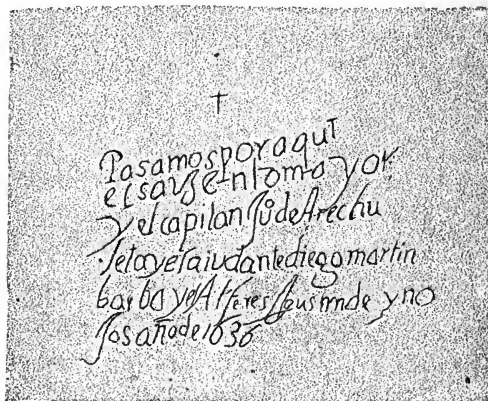 †
Pasamos por aqui
el sarjento mayor
y el capitan Juº de Arechu
leta y el aiudante diego martin
barba y el Alferes Agustin de yno
jos año de 1636